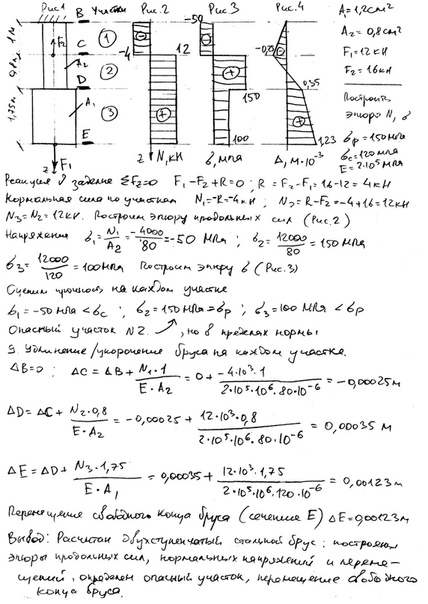 Рис 1 В Участки Рис.2 Рис 3 Рис.4
-50
1м F2 С ① -4 12 -0,25
0,8м A2 ②
D 150 0,35
1,75м A1 ③
E 100 1,23
z F1 z N, кН б, мпа Δ, м·10⁻³
A1=1,2см²
A2=0,8см²
F1=12кН
F2=16кН
Построить
эпюры N, б
бp=150мпа
бc=120мпа
E=2·10⁵мпа
Реакция в заделке ΣFz=0 F1-F2+R=0; R=F2-F1=16-12=4кН
Нормальная сила по участкам N1=-R=-4кН; N2=R-F2=-4+16=12кН
N3=N2=12кН. Построим эпюру продольных сил (Рис.2)
Напряжения б1=N1/A2=-4000/80=-50 МПа; б2=12000/80=150 МПа
б3=12000/120=100МПа Построим эпюру б (Рис.3)
Оценим прочность на каждом участке
б1=-50мПа<бc; б2=150мПа=бp; б3=100 МПа<бp
Опасный участок N2. , но в пределах нормы
9. Удлинение/укорочение бруса на каждом участке.
ΔB=0; ΔC=ΔB+N1·1/E·A2=0+-4·10³·1/2·10⁵·10⁶·80·10⁻⁶=-0,00025м
ΔD=ΔC+N2·0,8/E·A2=-0,00025+12·10³·0,8/2·10⁵·10⁶·80·10⁻⁶=0,00035м
ΔE=ΔD+N3·1,75/E·A1=0,00035+12·10³·1,75/2·10⁵·10⁶·120·10⁻⁶=0,00123м
Перемещение свободного конца бруса (сечение E) ΔE=0,00123м
Вывод: Расчитан двухступенчатый стальной брус: построены
эпюры продольных сил, нормальных напряжений и переме-
щений, определен опасный участок, перемещение свободного
конца бруса.